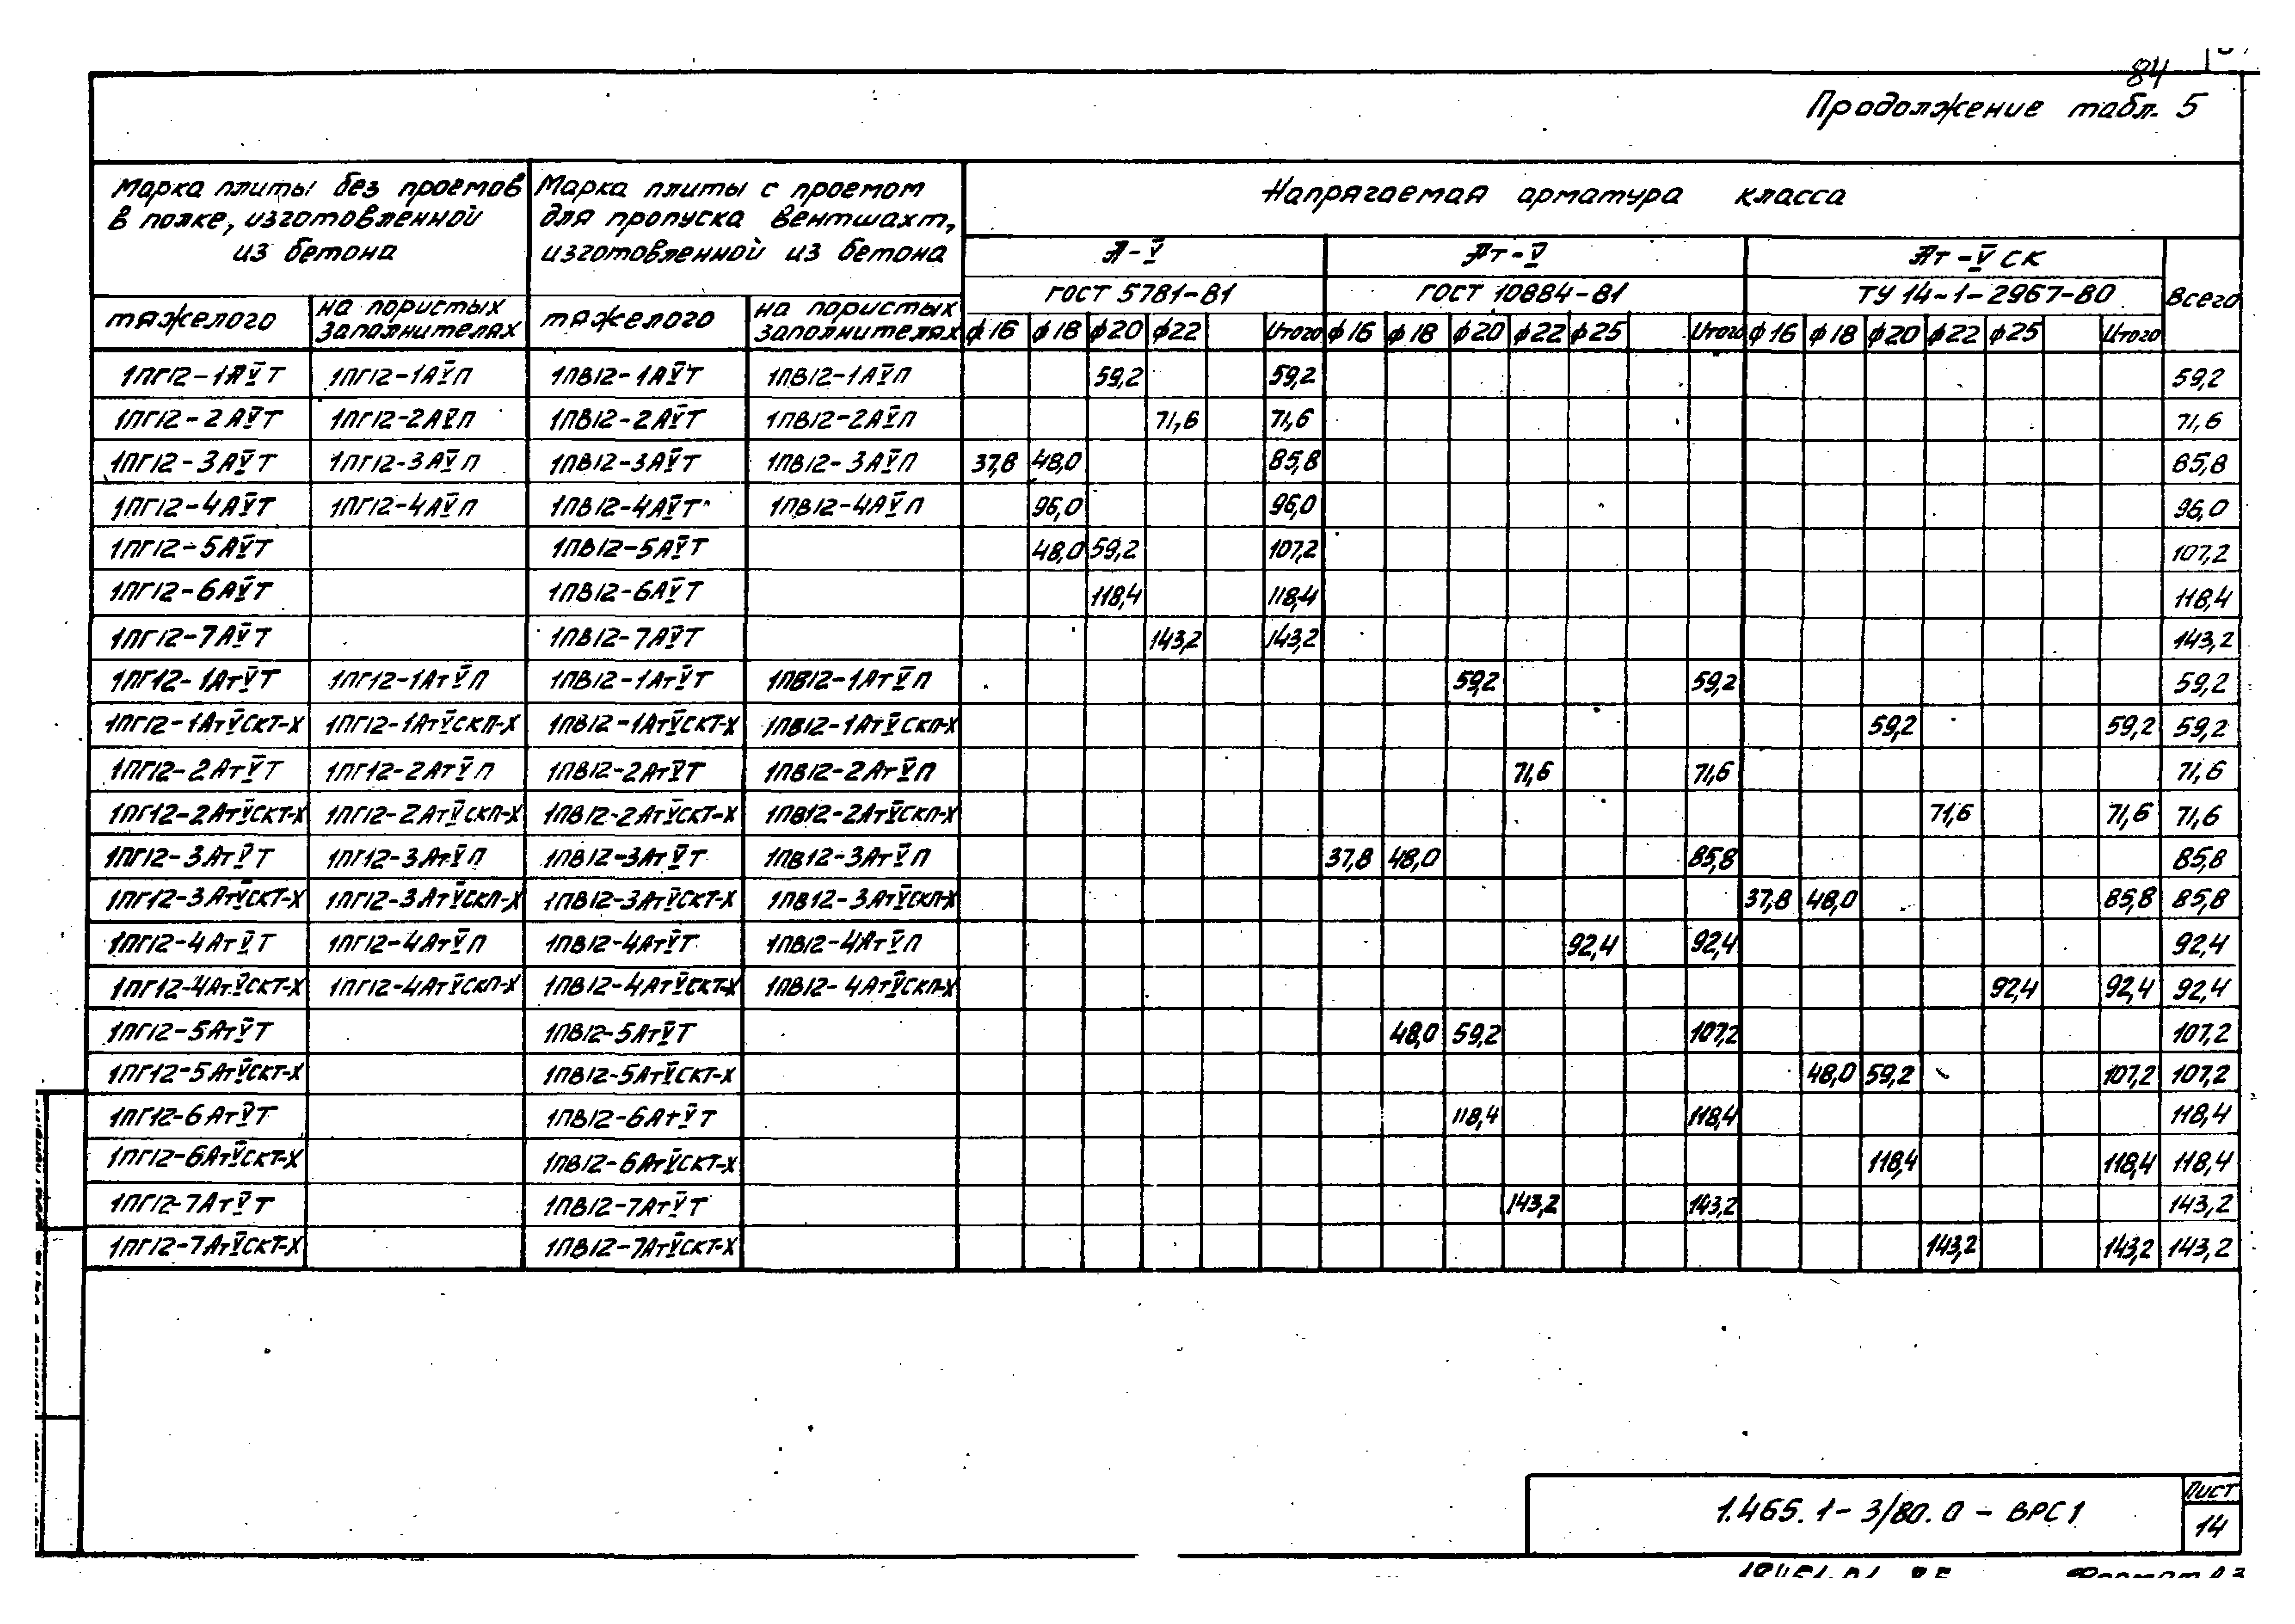 84
Продолжение табл. 5
Марка плиты без проемов в полке, изготовленной из бетона
Марка плиты с проемом для пропуска вентшахт, изготовленной из бетона
Напрягаемая арматура класса
А-V Ат-V Ат-V СК
ГОСТ 5781-81 ГОСТ 10884-81 ТУ 14-1-2967-80 Всего
тяжелого на пористых заполнителях тяжелого на пористых заполнителях ф16 ф18 ф20 ф22 Итого ф16 ф18 ф20 ф22 ф25 Итого ф16 ф18 ф20 ф22 ф25 Итого
1ПГ12-1АVТ 1ПГ12-1АVП 1ПВ12-1АVТ 1ПВ12-1АVП 59,2 59,2 59,2
1ПГ12-2АVТ 1ПГ12-2АVП 1ПВ12-2АVТ 1ПВ12-2АVП 71,6 71,6 71,6
1ПГ12-3АVТ 1ПГ12-3АVП 1ПВ12-3АVТ 1ПВ12-3АVП 37,8 48,0 85,8 85,8
1ПГ12-4АVТ 1ПГ12-4АVП 1ПВ12-4АVТ 1ПВ12-4АVП 96,0 96,0 96,0
1ПГ12-5АVТ 1ПВ12-5АVТ 48,0 59,2 107,2 107,2
1ПГ12-6АVТ 1ПВ12-6АVТ 118,4 118,4 118,4
1ПГ12-7АVТ 1ПВ12-7АVТ 143,2 143,2 143,2
1ПГ12-1АтVТ 1ПГ12-1АтVП 1ПВ12-1АтVТ 1ПВ12-1АтVП 59,2 59,2 59,2
1ПГ12-1АтVСКТ-Х 1ПГ12-1АтVСКП-Х 1ПВ12-1АтVСКТ-Х 1ПВ12-1АтVСКП-Х 59,2 59,2 59,2
1ПГ12-2АтVТ 1ПГ12-2АтVП 1ПВ12-2АтVТ 1ПВ12-2АтVП 71,6 71,6 71,6
1ПГ12-2АтVСКТ-Х 1ПГ12-2АтVСКП-Х 1ПВ12-2АтVСКТ-Х 1ПВ12-2АтVСКП-Х 71,6 71,6 71,6
1ПГ12-3АтVТ 1ПГ12-3АтVП 1ПВ12-3АтVТ 1ПВ12-3АтVП 37,8 48,0 85,8 85,8
1ПГ12-3АтVСКТ-Х 1ПГ12-3АтVСКП-Х 1ПВ12-3АтVСКТ-Х 1ПВ12-3АтVСКП-Х 37,8 48,0 85,8 85,8
1ПГ12-4АтVТ 1ПГ12-4АтVП 1ПВ12-4АтVТ 1ПВ12-4АтVП 92,4 92,4 92,4
1ПГ12-4АтVСКТ-Х 1ПГ12-4АтVСКП-Х 1ПВ12-4АтVСКТ-Х 1ПВ12-4АтVСКП-Х 92,4 92,4 92,4
1ПГ12-5АтVТ 1ПВ12-5АтVТ 48,0 59,2 107,2 107,2
1ПГ12-5АтVСКТ-Х 1ПВ12-5АтVСКТ-Х 48,0 59,2 107,2 107,2
1ПГ12-6АтVТ 1ПВ12-6АтVТ 118,4 118,4 118,4
1ПГ12-6АтVСКТ-Х 1ПВ12-6АтVСКТ-Х 118,4 118,4 118,4
1ПГ12-7АтVТ 1ПВ12-7АтVТ 143,2 143,2 143,2
1ПГ12-7АтVСКТ-Х 1ПВ12-7АтVСКТ-Х 143,2 143,2 143,2
1.465.1-3/80.0-ВРС1
Лист
14